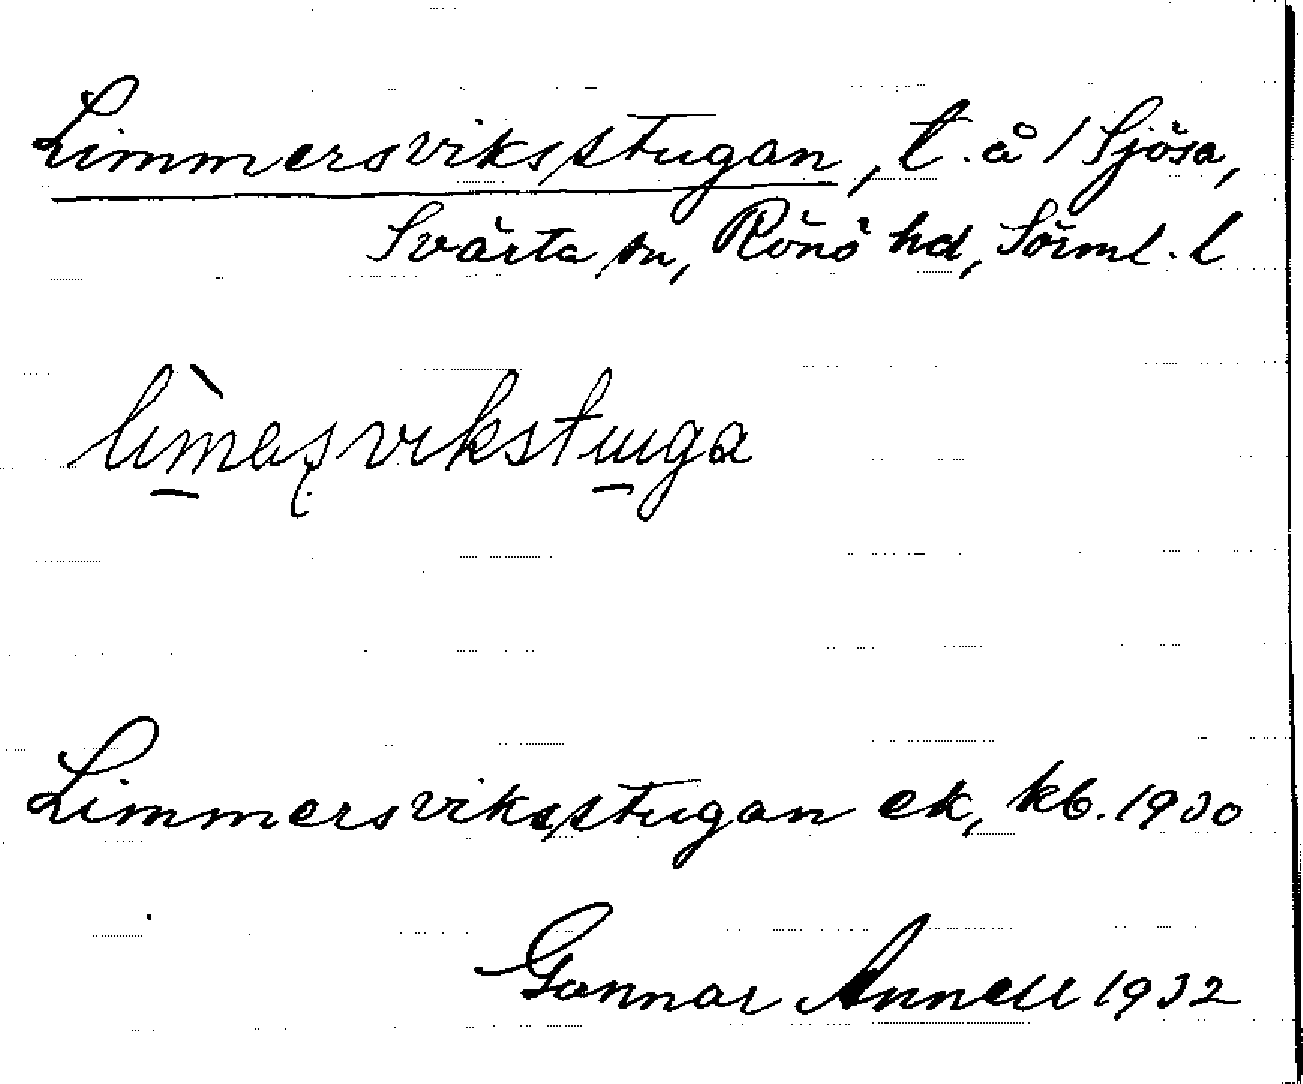 Limmersviksstugan, t. å 1 Sjösa,
Svärta sn, Rönö hd, Sörml. l
Limmersviksstugan ek, kb. 1930
Gunnar Annell 1932